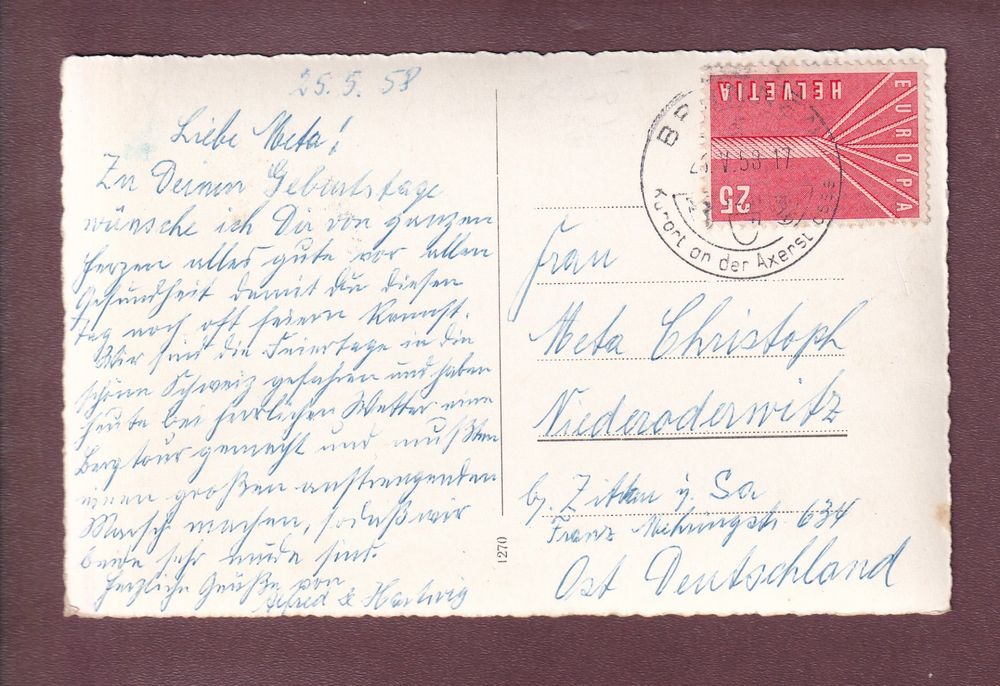 25. 5. 58
Liebe Meta!
Zu Deinem Geburtstage
wünsche ich Dir von ganzen
Herzen alles gute vor allen
Gesundheit damit du diesen
tag noch oft feiern kannst.
Wir sind die Feiertage in die
schöne Schweiz gefahren und haben
heute bei herrlichen Wetter eine
Bergtour gemacht und mußten
einen großen anstrengenden
Marsch machen, sodaß wir
beide sehr müde sind.
Herzliche Grüße von
Alfred & Hartwig
1270
HELVETIA
EUROPA
25
V.58.17
Kurort an der Axenst
Frau
Meta Christoph
Niederoderwitz
bz. Zittau i. Sa
Franz 634
Ost Deutschland